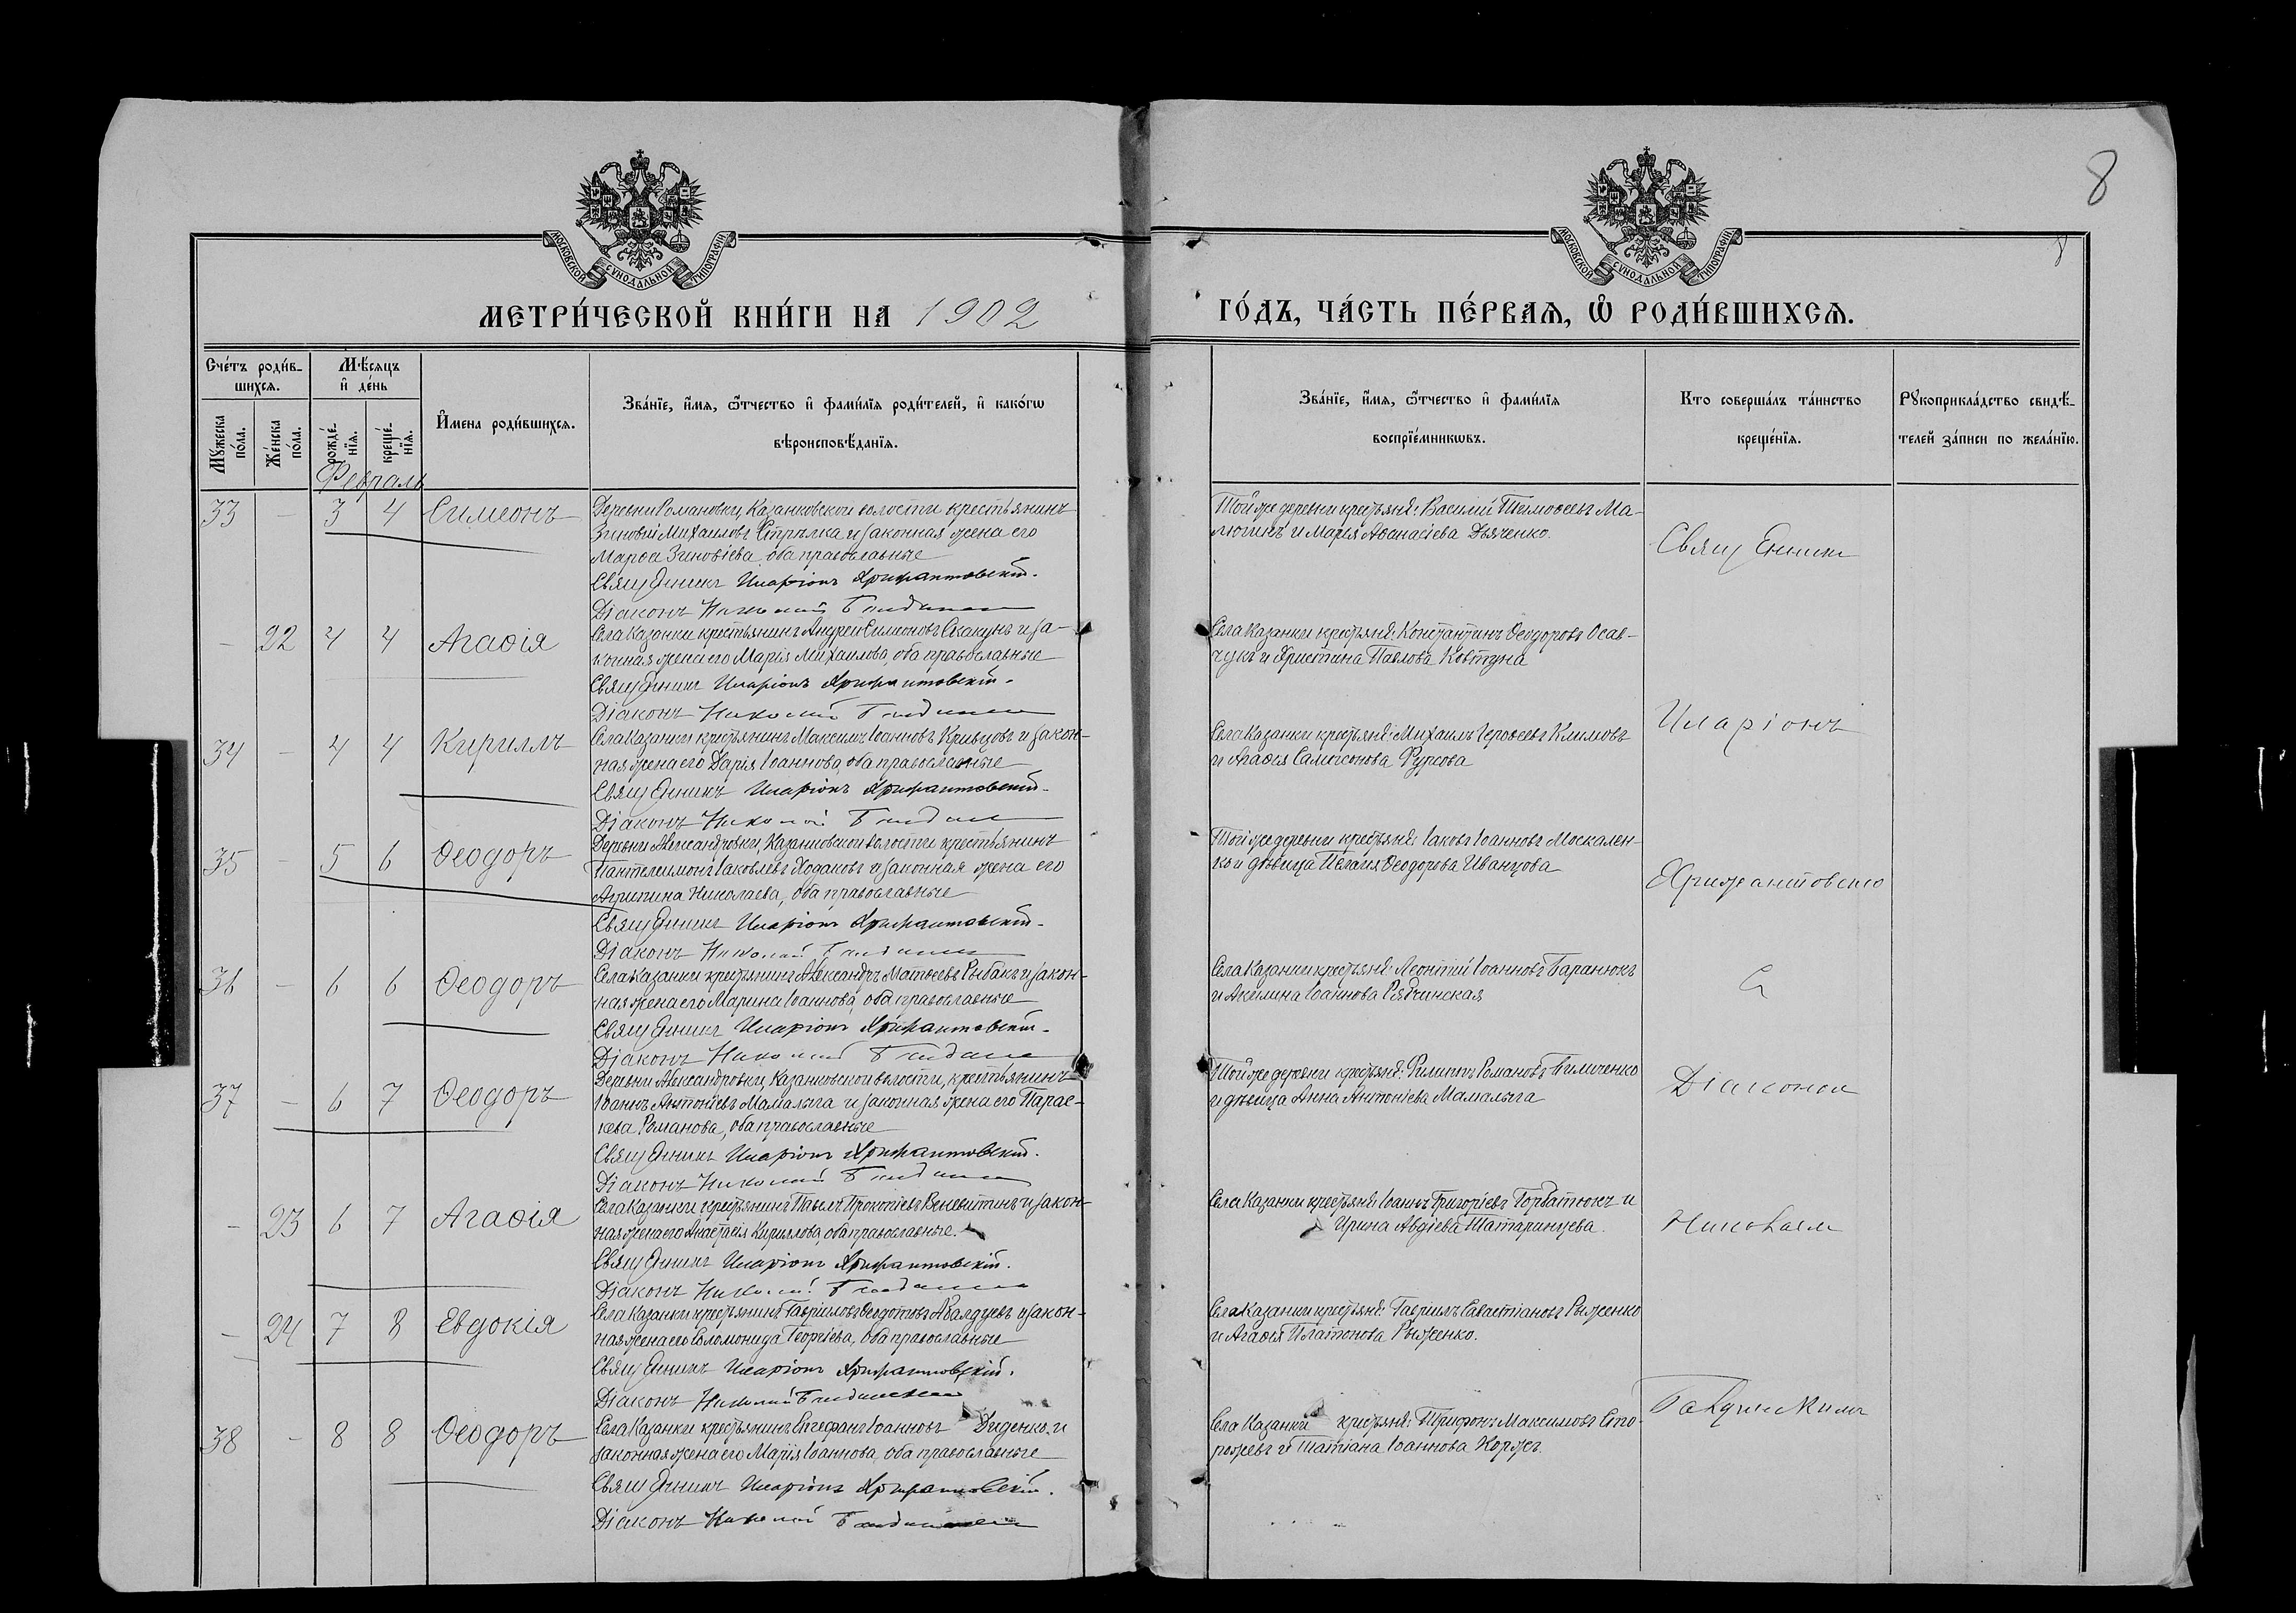 8
8
МОСКОВСКОЙ СУНОДАЛЬНОЙ ТИПОГРАФІИ
МОСКОВСКОЙ СУНОДАЛЬНОЙ ТИПОГРАФІИ
МЕТРИ́ЧЕСКОЙ КНИ́ГИ НА 1902 ГО́ДЪ, ЧА́СТЬ ПЕ́РВАЯ, Ѽ РОДИ́ВШИХСЯ.
Сче́тъ роди́в-
шихся.
Мꙋ́жеска по́ла.
Же́нска по́ла.
Мѣ́сяцъ и де́нь
рожде́-нїя.
креще́-нїя.
И҆мена роди́вшихся.
Зва́нїе, и҆́мя, ѻ҆́тчество и҆ фами́лїя роди́телей, и҆ како́гѡ
вѣроисповѣ́данїя.
Зва́нїе, и҆́мя, ѻ҆́тчество и҆ фами́лїя
воспрїе́мникѡвъ.
Кто соверша́лъ та́инство
креще́нїя.
Рꙋкоприкла́дство свидѣ́-
телей за́писи по жела́нїю.
Февраль
33 — 3 4 Симеонъ
Деревни Романовки, Казанковской волости крестьянинъ
Зиновій Михаиловъ Стрѣлка и законная жена его
Марѳа Зиновіева, оба православные
Священникъ Иларіонъ Хрисантовскій.
Діаконъ Николай
Той же деревни крестьяне: Василій Тимоѳеевъ Ма-
люгинъ и Марія Аѳанасіева Дьяченко.
— 22 4 4 Агаѳія
Села Казанки крестьянинъ Андрей Симеоновъ Скакунъ и за-
конная жена его Марія Михаилова, оба православные
Священникъ Иларіонъ Хрисантовскій.
Діаконъ Николай
Села Казанки крестьяне: Константинъ Ѳеодоровъ Осав-
чукъ и Христина Павлова Ковтуна
34 — 4 4 Кириллъ
Села Казанки крестьянинъ Максимъ Іоанновъ Кривцовъ и закон-
ная жена его Дарія Іоаннова, оба православные
Священникъ Иларіонъ Хрисантовскій.
Діаконъ Николай
Села Казанки крестьяне: Михаилъ Іероѳеевъ Климовъ
и Агаѳія Самсонова Фурсова
35 5 6 Ѳеодоръ
Деревни Александровки, Казанковской волости крестьянинъ
Пантелеимонъ Іаковлевъ Ходаковъ и законная жена его
Агрипина Николаева, оба православные
Священникъ Иларіонъ Хрисантовскій.
Діаконъ Николай
Той же деревни крестьяне: Іаковъ Іоанновъ Москален-
ко и дѣвица Пелагія Ѳеодорова Иванцова
36 — 6 6 Ѳеодоръ
Села Казанки крестьянинъ Александръ Матѳеевъ Рыбакъ и закон-
ная жена его Марина Іоаннова, оба православные
Священникъ Иларіонъ Хрисантовскій.
Діаконъ Николай
Села Казанки крестьяне: Леонтій Іоанновъ Баранюкъ
и Акилина Іоаннова Рябчинская
37 — 6 7 Ѳеодоръ
Деревни Александровки, Казанковской волости, крестьянинъ
Іоаннъ Антоніевъ Мамалыга и законная жена его Парас-
кева Романова, оба православные
Священникъ Иларіонъ Хрисантовскій.
Діаконъ Николай
Той же деревни крестьяне: Филиппъ Романовъ Биличенко
и дѣвица Анна Антоніева Мамалыга
— 23 6 7 Агаѳія
Села Казанки крестьянинъ Павелъ Прокопіевъ Веневитинъ и закон-
ная жена его Анастасія Кириллова, оба православные.
Священникъ Иларіонъ Хрисантовскій.
Діаконъ Николай
Села Казанки крестьяне: Іоаннъ Григоріевъ Горбатюкъ и
Ирина Авдіева Татаринцева.
— 24 7 8 Евдокія
Села Казанки крестьянинъ Гавріилъ Ѳеодотовъ и закон-
ная жена его Соломонида Георгіева, оба православные
Священникъ Иларіонъ Хрисантовскій.
Діаконъ Николай
Села Казанки крестьяне: Гавріилъ Савастіановъ Рыженко
и Агаѳія Платонова Рыженко.
38 — 8 8 Ѳеодоръ
Села Казанки крестьянинъ Стефанъ Іоанновъ Диденко и
законная жена его Марія Іоаннова, оба православные
Священникъ Иларіонъ Хрисантовскій.
Діаконъ Николай
Села Казанки крестьяне: Трифонъ Максимовъ Сто-
рожевъ и Татіана Іоаннова Коржъ.
Священникъ
Иларіонъ
Хрисантовскій
съ
Діакономъ
Николаемъ